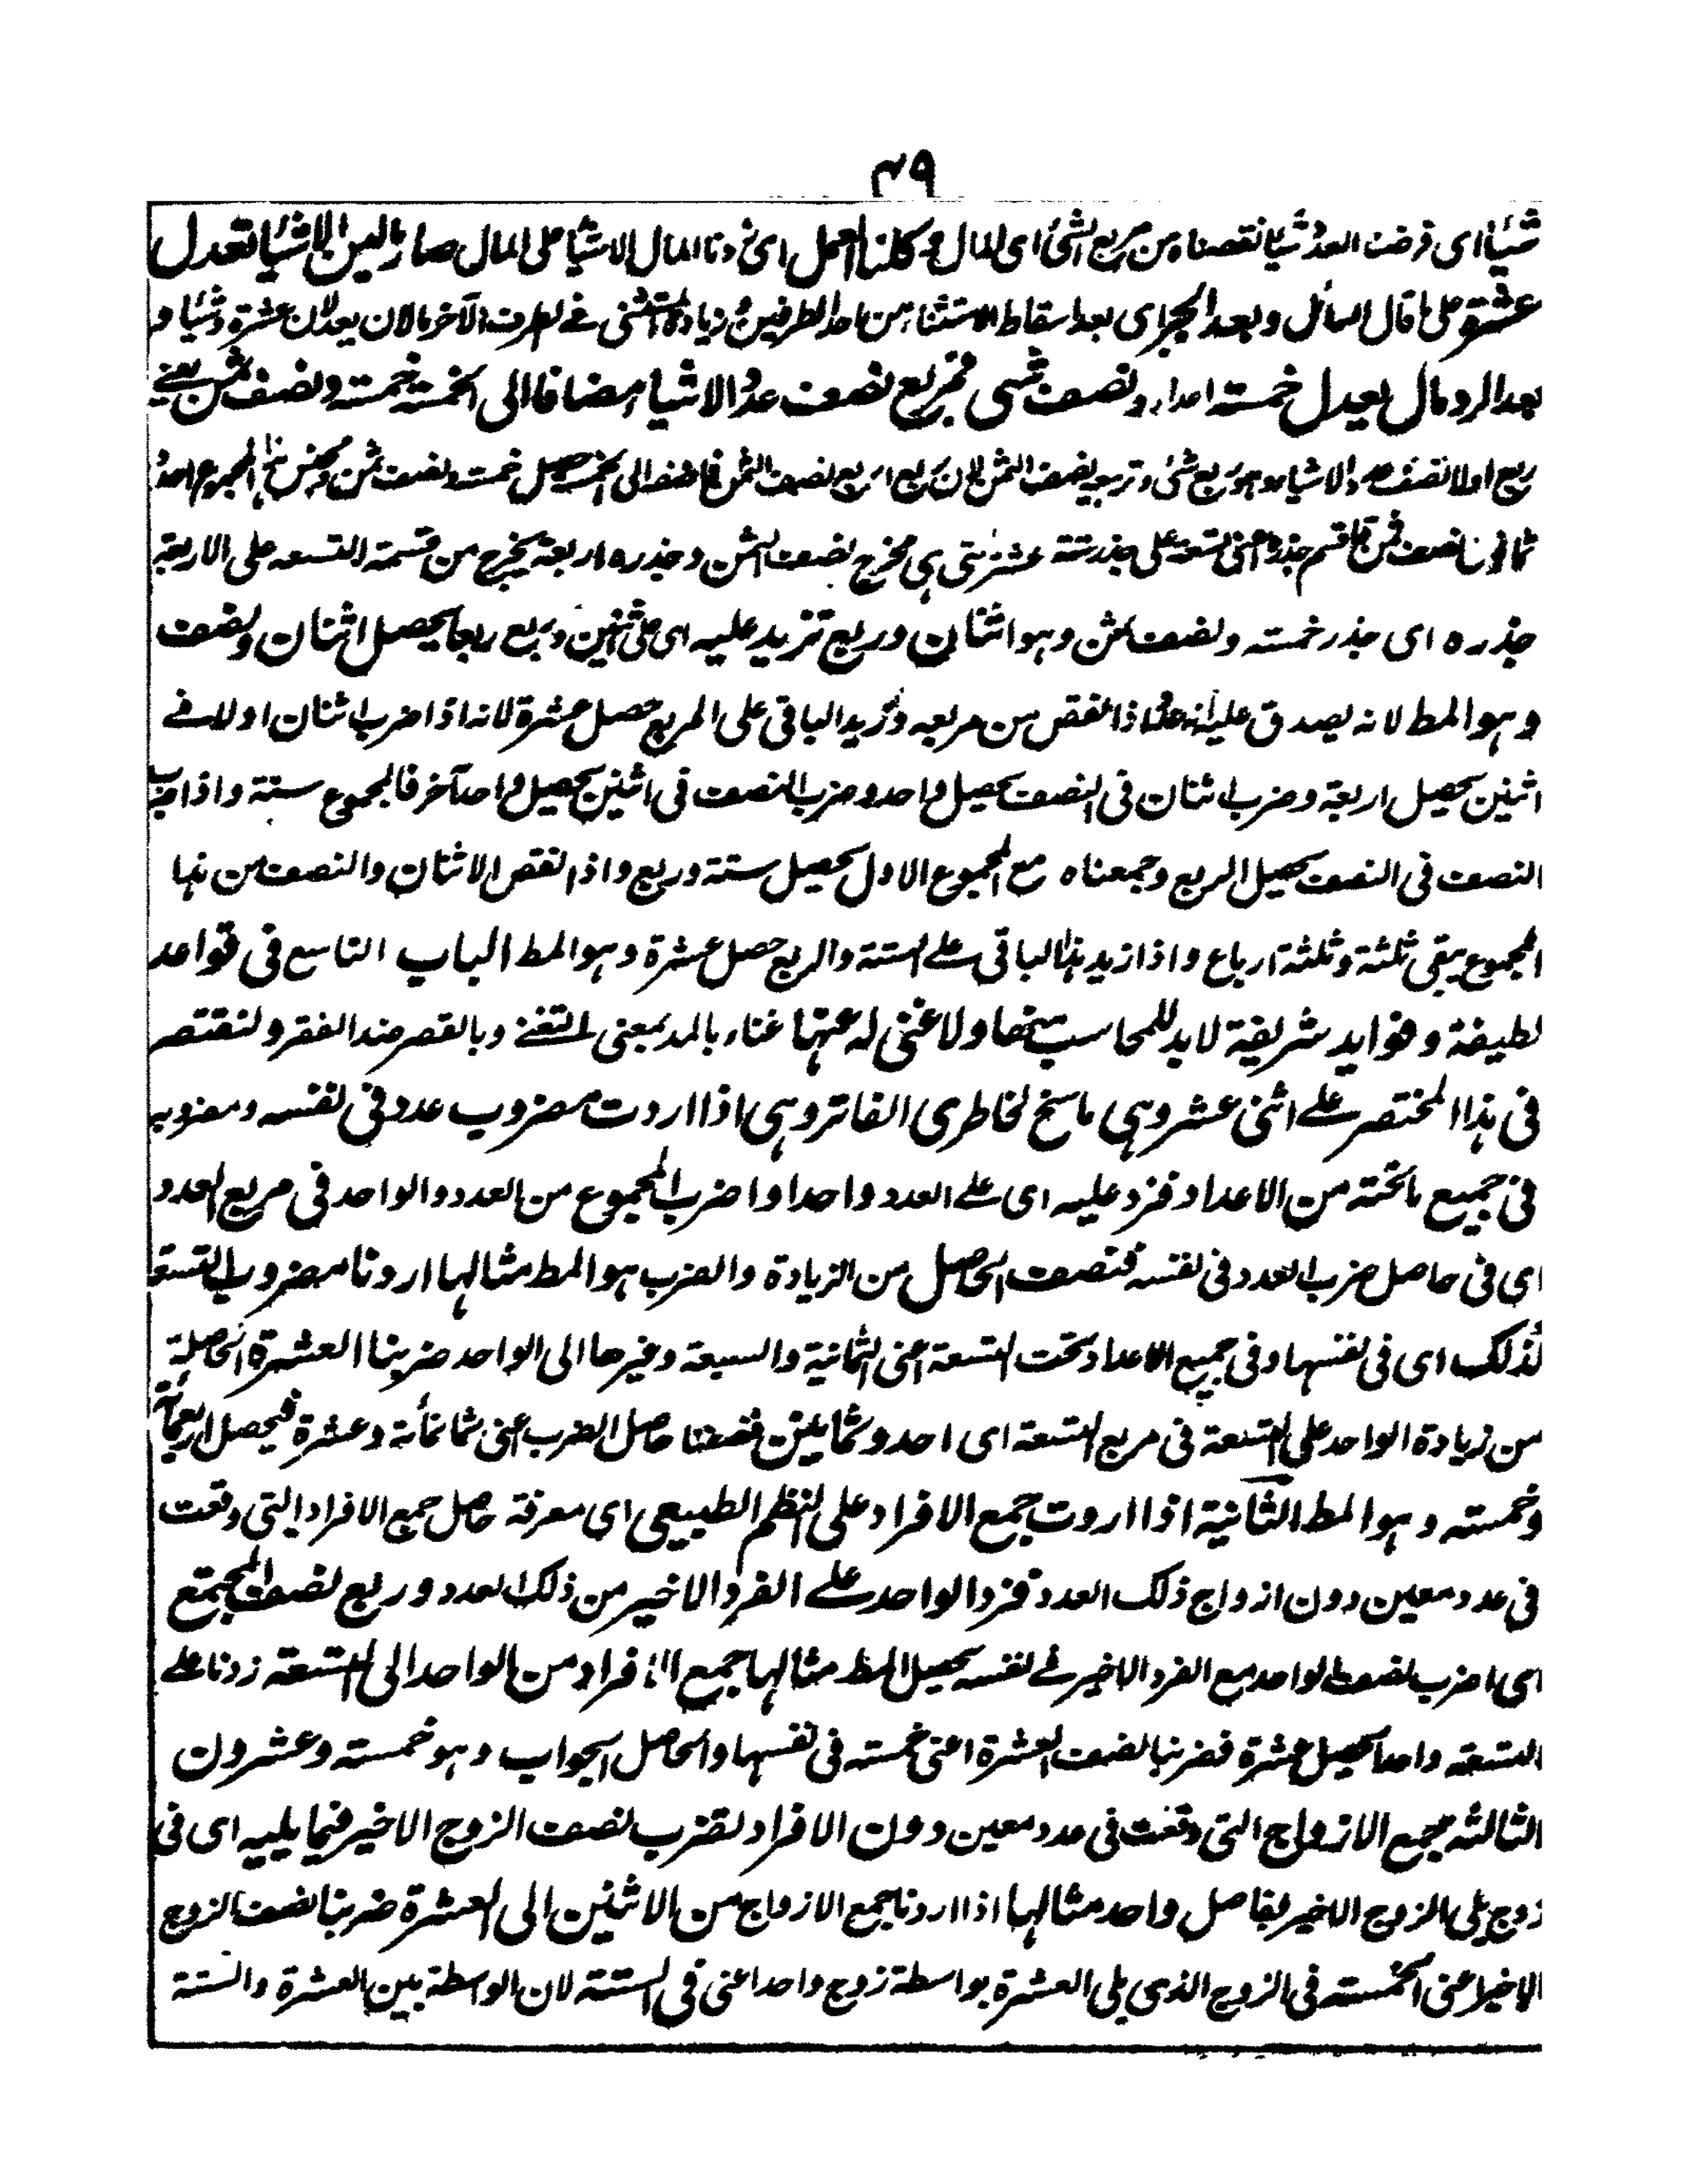 ٤٩
شيئا اى فرضت العدد شيئا نقصناه من مربع الشئ اى المال وكملنا العمل اى زدنا المال الا شيئا على المال صار مالين الا شيئا تعدل
عشرة على ما قال السائل وبعد الجبر اى بعد اسقاط الاستثناء من احد الطرفين وزيادة المستثنى فى الطرف الآخر مالان يعدلان عشرة وشيئا و
بعد الرد مال يعدل خمسة اعداد ونصف شئ فمربع نصف عدد الاشياء مضافا الى الخمسة خمسة ونصف ثمن يعنى
ربع اولا نصف عدد الاشياء وهو ربع شئ وتربيعه نصف الثمن لان ربع الربع نصف الثمن فاضفه الى الخمسة يحصل خمسة ونصف ثمن ومجنس هذا المجموع احد
ثمانون نصف ثمن فاقسم جذره اعنى تسعة على جذر ستة عشر التى هى مخرج نصف الثمن وجذره اربعة يخرج من قسمة التسعه على الاربعة
جذره اى جذر خمسته ونصف ثمن وهو اثنان وربع تزيد عليه اى على اثنين وربع ربعا يحصل اثنان ونصف
وهو المط لانه يصدق عليه انه عدد اذا نقص من مربعه وزيد الباقى على المربع حصل عشرة لانه اذا ضرب اثنان اولا فى
اثنين يحصل اربعة وضرب اثنان فى النصف يحصل واحد وضرب النصف فى اثنين يحصل واحد آخر فالمجموع ستة واذا ضرب
النصف فى النصف يحصل الربع وجمعناه مع المجموع الاول يحصل ستة وربع واذا نقص الاثنان والنصف من هذا
المجموع يبقى ثلثة وثلثة ارباع واذا زيد هذا الباقى على الستة والربع حصل عشرة وهو المط الباب التاسع فى قواعد
لطيفة وفوايد شريفة لابد للمحاسب منها ولا غنى له عنها غناء بالمد بمعنى التغنى وبالقصر ضد الفقر ولنقتصر
فى هذا المختصر على اثنى عشر وهى ما سنح لخاطرى الفاتر وهى اذا اردت مضروب عدد فى نفسه ومضروبه
فى جميع ما تحته من الاعداد فزد عليه اى على العدد واحدا واضرب المجموع من العدد والواحد فى مربع العدد
اى فى حاصل ضرب العدد فى نفسه فنصف الحاصل من الزيادة والضرب هو المط مثالها اردنا مضروب التسعة
كذلك اى فى نفسها وفى جميع الاعداد تحت التسعة اعنى الثمانية والسبعة وغيرها الى الواحد ضربنا العشرة الحاصلة
من زيادة الواحد على التسعة فى مربع التسعة اى احد وثمانين فنصفنا حاصل الضرب اعنى ثمانمائة وعشرة فيحصل اربعمائة
وخمسته وهو المط الثانية اذا اردت جمع الافراد على النظم الطبيعى اى معرفة حاصل جمع الافراد التى وقعت
فى عدد معين دون ازواج ذلك العدد فزد الواحد على الفرد الاخير من ذلك العدد وربع نصف المجتمع
اى اضرب نصف الواحد مع الفرد الاخير فى نفسه يحصل المط مثالها جمع الافراد من الواحد الى التسعة زدنا على
التسعه واحدا يحصل عشرة فضربنا نصف العشرة اعنى خمسته فى نفسها والحاصل الجواب وهو خمسته وعشرون
الثالثه جمع الازواج التى وقعت فى عدد معين دون الافراد تضرب نصف الزوج الاخير فيما يليه اى فى
زوج يلى الزوج الاخير بفاصل واحد مثالها اذا اردنا جمع الازواج من الاثنين الى العشرة ضربنا نصف الزوج
الاخير اعنى الخمسته فى الزوج الذى يلى العشرة بواسطة زوج واحد اعنى فى الستة لان الواسطة بين العشرة والستة